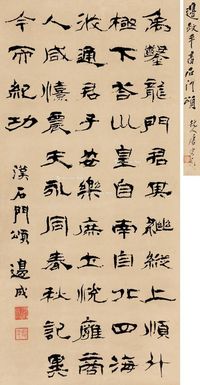 邊政平書石門頌
禹鑿龍門君其繼縱上順斗
極下答坤皇自南自北四海
攸通君子安樂庶士悅雍商
人咸憘農夫永同春秋記異
今而紀功
漢石門頌 邊成